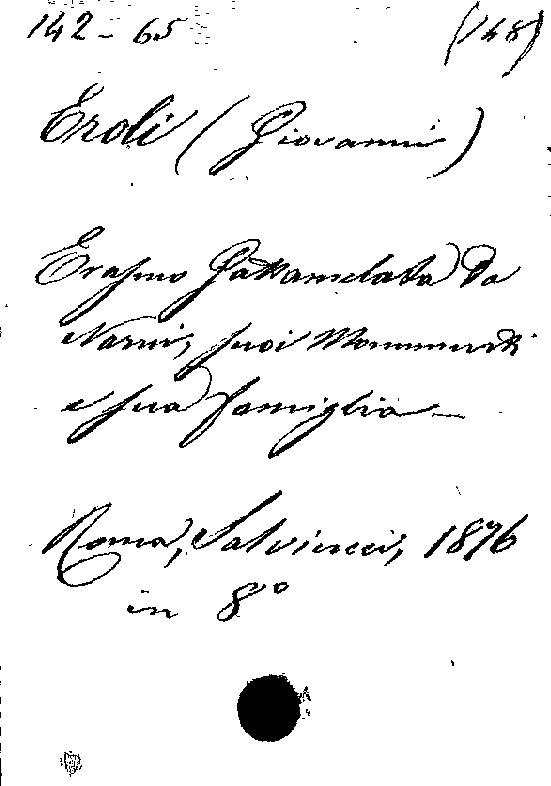 142-65 (148)
Eroli (Giovanni)
Erasmo Gattamelata da
Narni, suoi Monumenti
e sua famiglia —
Roma, Salviucci, 1876
in 8º